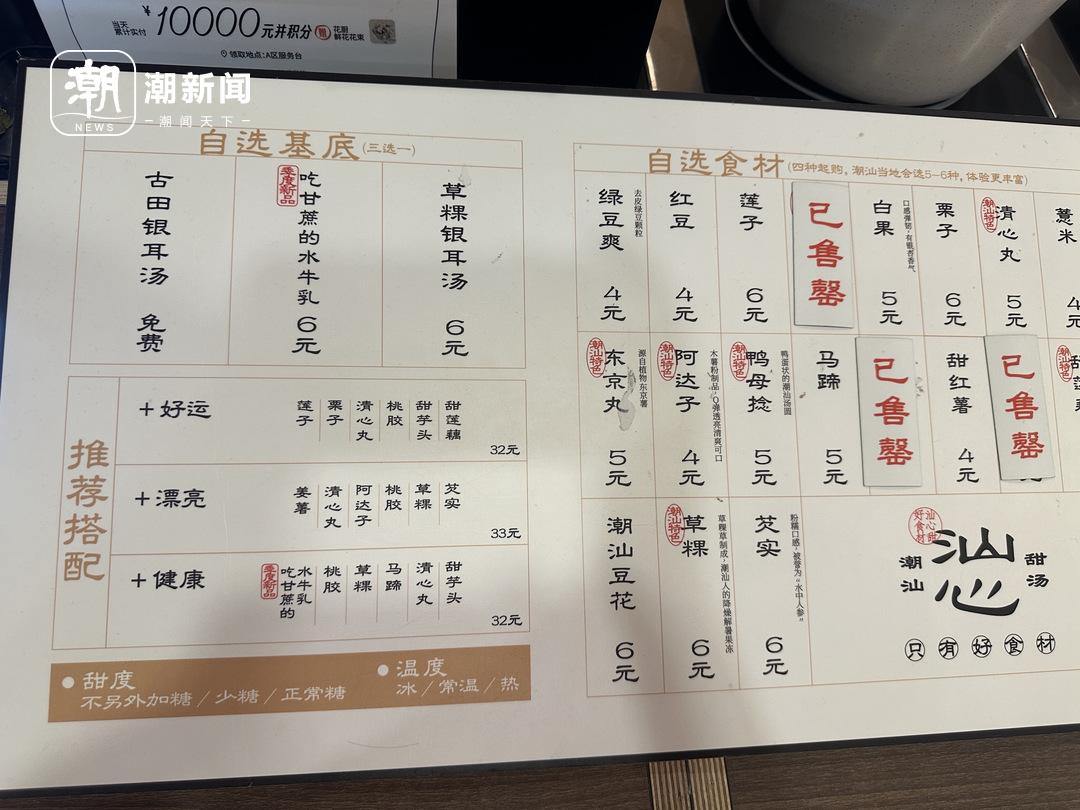 当天
累计实付
¥10000元并积分
赠
花厨
鲜花花束
领取地点:A区服务台
潮
NEWS
潮新闻
潮闻天下
自选基底(三选一)
古田银耳汤 免费
季度新品
吃甘蔗的水牛乳 6元
草粿银耳汤 6元
推荐搭配
+好运
莲子
栗子
清心丸
桃胶
甜芋头
甜莲藕
32元
+漂亮
姜薯
清心丸
阿达子
桃胶
草粿
芡实
33元
+健康
季度新品
吃甘蔗的
水牛乳
桃胶
草粿
马蹄
清心丸
甜芋头
32元
甜度
不另外加糖/少糖/正常糖
温度
冰/常温/热
自选食材(四种起购,潮汕当地会选5-6种,体验更丰富)
绿豆爽
去皮绿豆颗粒
4元
红豆
4元
莲子
6元
已售罄
白果
口感弹韧,有银杏香气
5元
栗子
6元
潮汕特色
清心丸
5元
薏米
潮汕特色
东京丸
源自植物东京薯
5元
潮汕特色
阿达子
木薯粉制品,Q弹透亮清爽可口
4元
潮汕特色
鸭母捻
鸭蛋状的潮汕汤圆
5元
马蹄
5元
已售罄
甜红薯
4元
已售罄
潮汕豆花
6元
潮汕特色
草粿
草粿草制成,潮汕人的降燥解暑果冻
6元
芡实
粉糯口感,被誉为“水中人参”
6元
潮汕
汕心
甜汤
只有好食材